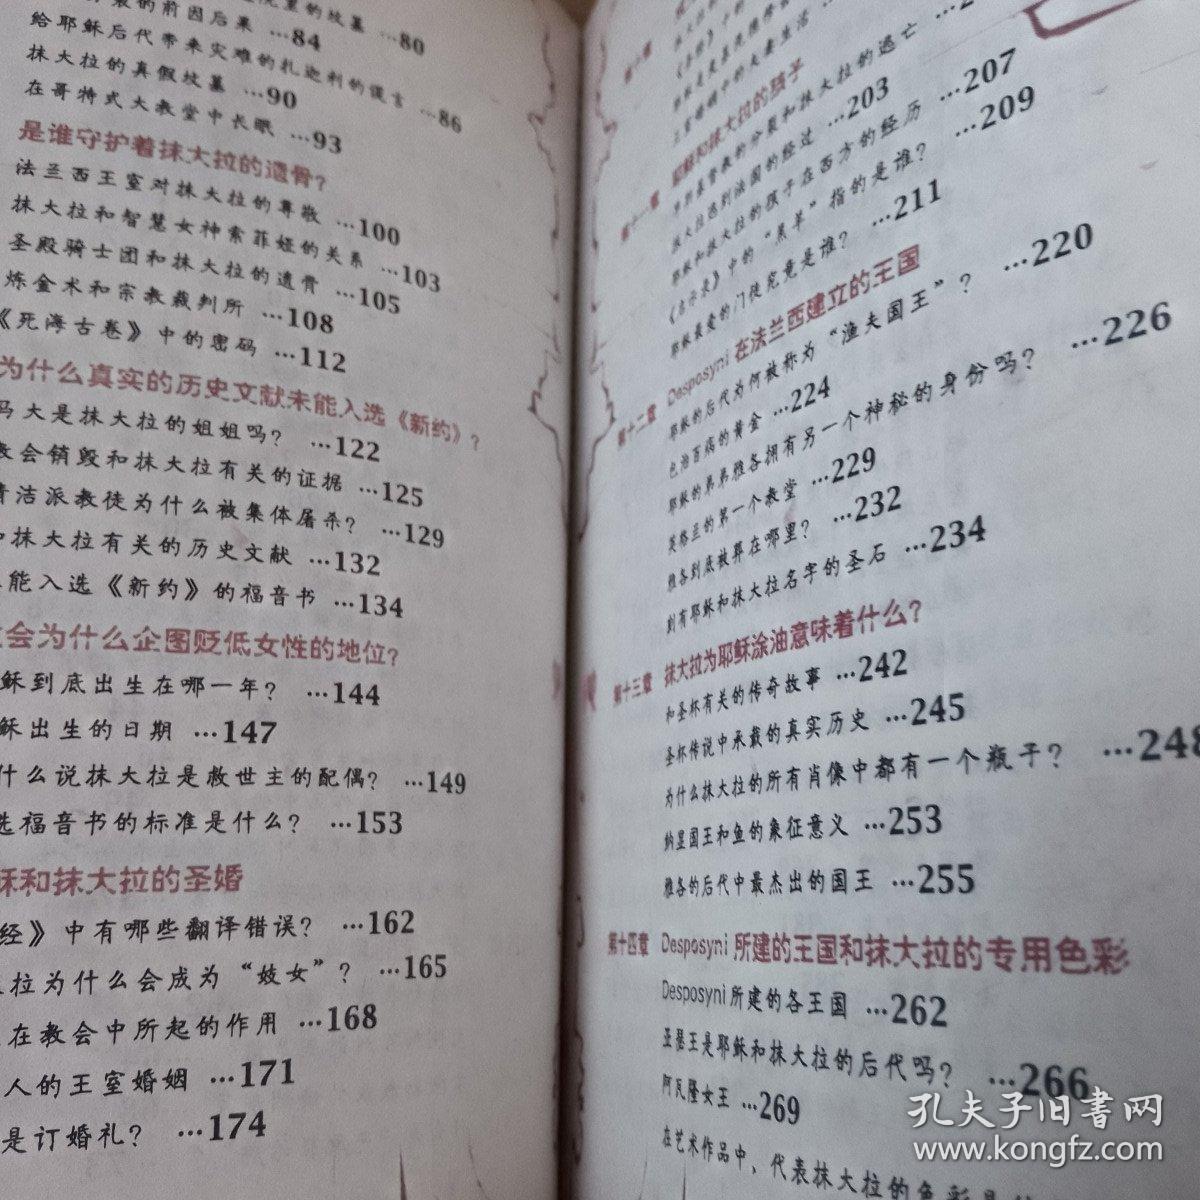 的前因后果 …84
…80
给耶稣后代带来灾难的扎迦利的谎言 …86
抹大拉的真假坟墓 …90
在哥特式大教堂中长眠 …93
是谁守护着抹大拉的遗骨？
法兰西王室对抹大拉的尊敬 …100
抹大拉和智慧女神索菲娅的关系 …103
圣殿骑士团和抹大拉的遗骨 …105
炼金术和宗教裁判所 …108
《死海古卷》中的密码 …112
为什么真实的历史文献未能入选《新约》？
马大是抹大拉的姐姐吗？ …122
教会销毁和抹大拉有关的证据 …125
清洁派教徒为什么被集体屠杀？ …129
和抹大拉有关的历史文献 …132
能入选《新约》的福音书 …134
会为什么企图贬低女性的地位？
稣到底出生在哪一年？ …144
稣出生的日期 …147
什么说抹大拉是救世主的配偶？ …149
选福音书的标准是什么？ …153
稣和抹大拉的圣婚
经》中有哪些翻译错误？ …162
拉为什么会成为“妓女”？ …165
在教会中所起的作用 …168
人的王室婚姻 …171
是订婚礼？ …174
第十一章 耶稣和抹大拉的孩子
早期基督教的分裂和抹大拉的逃亡
抹大拉逃到法国的经过 …203
耶稣和抹大拉的孩子在西方的经历 …207
《启示录》中的“黑羊”指的是谁？ …209
耶稣最爱的门徒究竟是谁？ …211
第十二章 Desposyni 在法兰西建立的王国
耶稣的后代为何被称为“渔夫国王”？ …220
包治百病的黄金 …224
耶稣的弟弟雅各拥有另一个神秘的身份吗？ …226
英格兰的第一个教堂 …229
雅各到底被葬在哪里？ …232
刻有耶稣和抹大拉名字的圣石 …234
第十三章 抹大拉为耶稣涂油意味着什么？
和圣杯有关的传奇故事 …242
圣杯传说中承载的真实历史 …245
为什么抹大拉的所有肖像中都有一个瓶子？ …248
纳显国王和鱼的象征意义 …253
雅各的后代中最杰出的国王 …255
第十四章 Desposyni 所建的王国和抹大拉的专用色彩
Desposyni 所建的各王国 …262
亚瑟王是耶稣和抹大拉的后代吗？ …266
阿瓦隆女王 …269
在艺术作品中，代表抹大拉的色彩是
孔夫子旧书网
www.kongfz.com